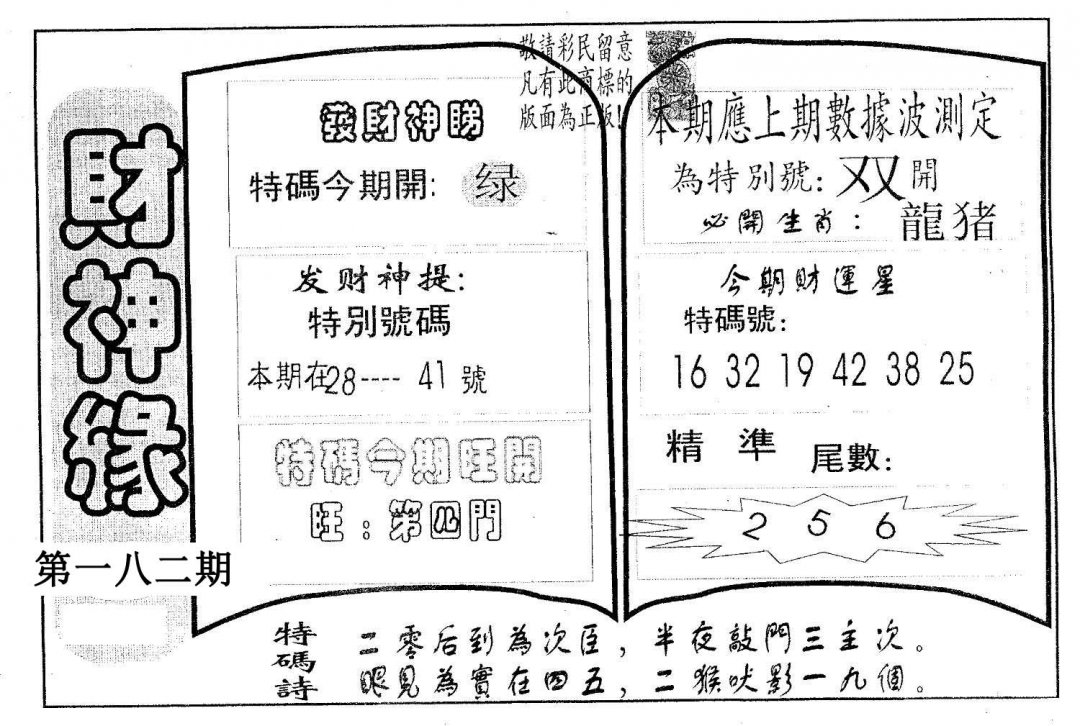 財神緣
第一八二期
敬請彩民留意
凡有此商標的
版面為正版!
發財神睇
特碼今期開: 绿
发财神提:
特別號碼
本期在28---- 41 號
特碼今期旺開
旺:第四門
本期應上期數據波測定
為特別號: 双 開
必開生肖: 龍猪
今期財運星
特碼號:
16 32 19 42 38 25
精 準 尾數:
2 5 6
特碼詩
二零后到為次臣,半夜敲門三主次。
眼見為實在四五,二猴吠影一九個。